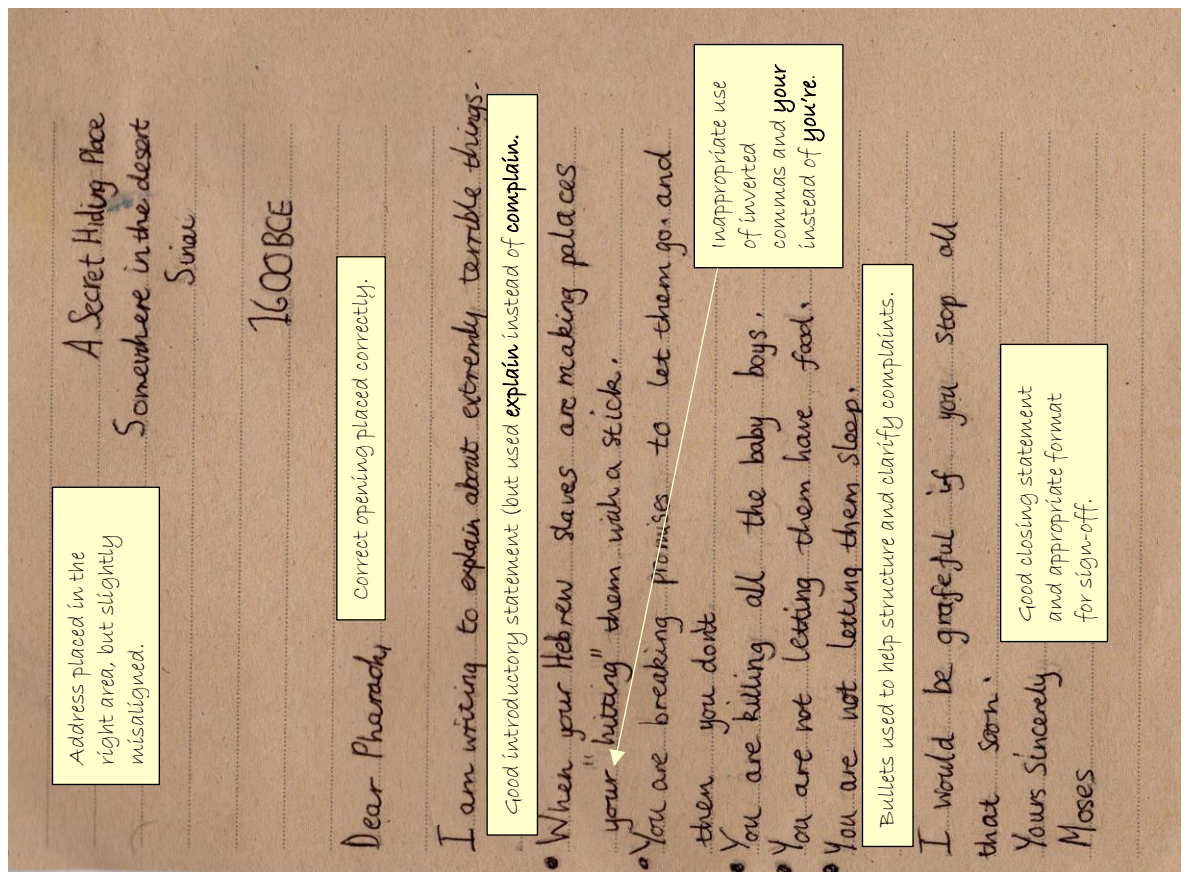 A Secret Hiding Place
Somewhere in the desert
Sinai
1600BCE
Address placed in the
right area, but slightly
misaligned.
Correct opening placed correctly.
Dear Pharaoh,
I am writing to explain about extremly terrible things.
Good introductory statement (but used explain instead of complain.
• When your Hebrew slaves are making palaces
your "hitting" them with a stick.
• You are breaking promises to let them go and
then you don't
• You are killing all the baby boys.
• You are not letting them have food.
• You are not letting them sleep.
Inappropriate use
of inverted
commas and your
instead of you're.
Bullets used to help structure and clarify complaints.
I would be grateful if you stop all
that soon.
Yours Sincerely
Moses
Good closing statement
and appropriate format
for sign-off.